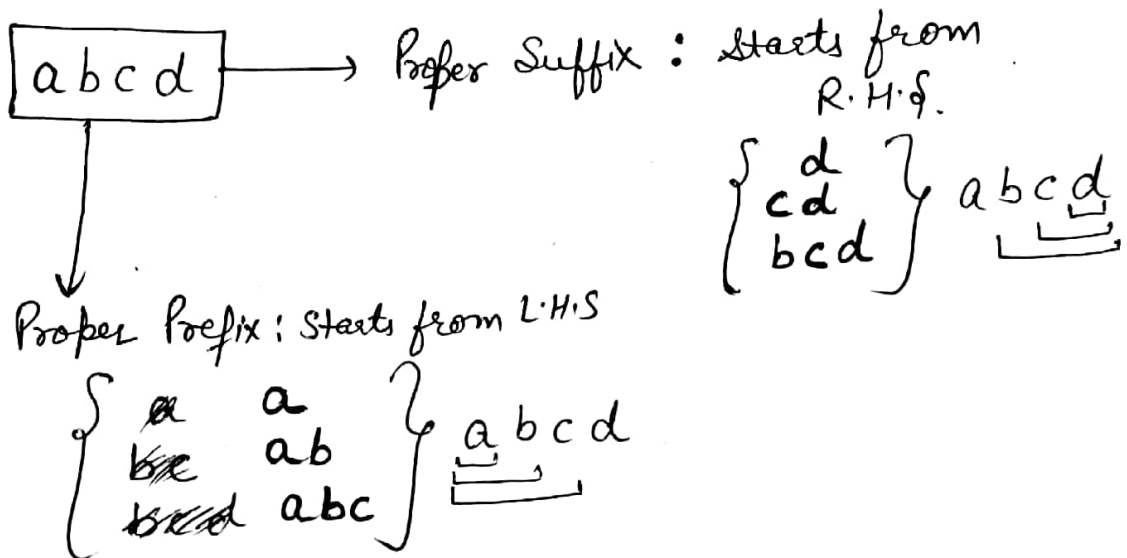 abcd Proper Suffix : Starts from
R.H.S.
d
cd
bcd
abcd
Proper Prefix : Starts from L.H.S
a
ab
abc
abcd